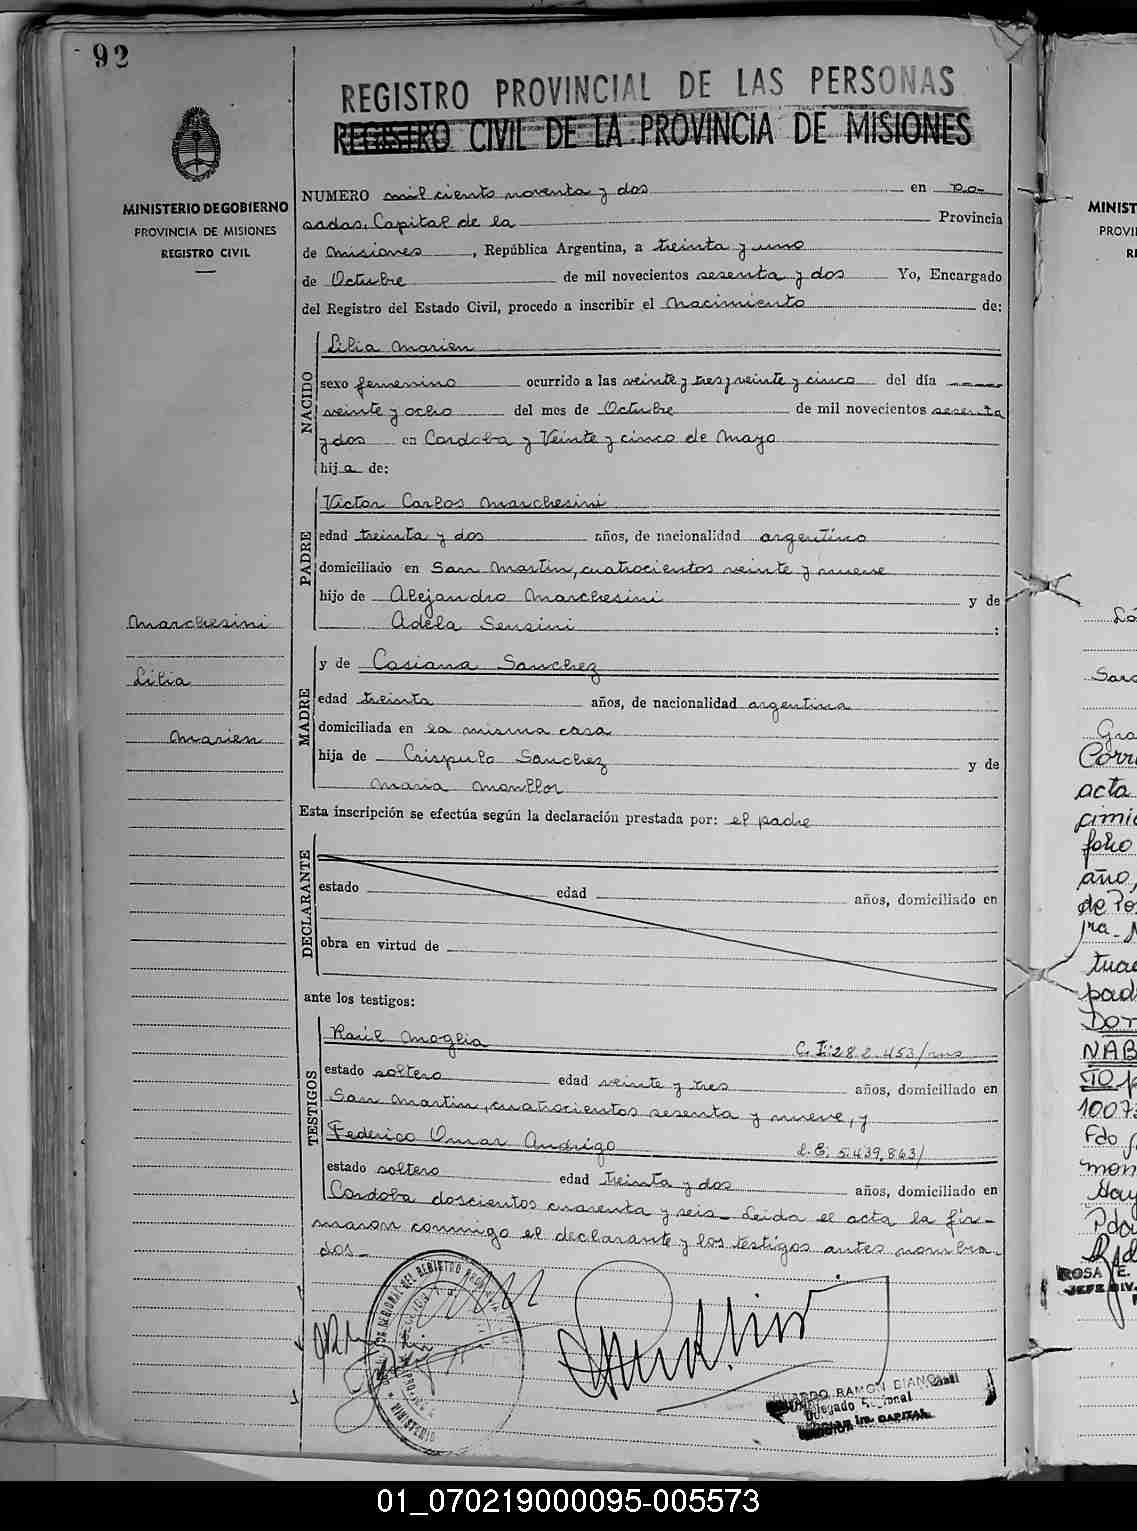 92
REGISTRO PROVINCIAL DE LAS PERSONAS
REGISTRO CIVIL DE LA PROVINCIA DE MISIONES
MINISTERIO DE GOBIERNO
PROVINCIA DE MISIONES
REGISTRO CIVIL
NUMERO mil ciento noventa y dos en Po-
sadas, Capital de la Provincia
de Misiones, República Argentina, a treinta y uno
de Octubre de mil novecientos sesenta y dos Yo, Encargado
del Registro del Estado Civil, procedo a inscribir el Nacimiento de:
NACIDO
Lilia Marien
sexo femenino ocurrido a las veinte y tres y veinte y cinco del día
veinte y ocho del mes de Octubre de mil novecientos sesenta
y dos en Cordoba y Veinte y cinco de Mayo
hija de:
PADRE
Victor Carlos Marchesini
edad treinta y dos años, de nacionalidad argentino
domiciliado en San Martin, cuatrocientos veinte y nueve
hijo de Alejandro Marchesini y de
Adela Sensini :
Marchesini
Lilia
Marien
MADRE
y de Casiana Sanchez
edad treinta años, de nacionalidad argentina
domiciliada en la misma casa
hija de Crispulo Sanchez y de
Maria Monllor
Esta inscripción se efectúa según la declaración prestada por: el padre
DECLARANTE
estado edad años, domiciliado en
obra en virtud de
ante los testigos:
TESTIGOS
Raúl Moglia C. I: 282.453/mns
estado soltero edad veinte y tres años, domiciliado en
San Martin, cuatrocientos sesenta y nueve, y
Federico Omar Andrigo L. E; 5.439.863/
estado soltero edad treinta y dos años, domiciliado en
Cordoba doscientos cuarenta y seis_ Leida el acta la fir-
maron conmigo el declarante y los testigos antes nombra-
dos_
RAMON
Delegado
CAPITAL
MINIST
PROVI
RE
Ló
Sara
Gra
Corri
acta
cimie
folio
año,
de Po
jra_
tuad
padr
Dor
NAB
TO p
1007
Fdo
mon
ROSA E.
JEFE DIV.
01_070219000095-005573